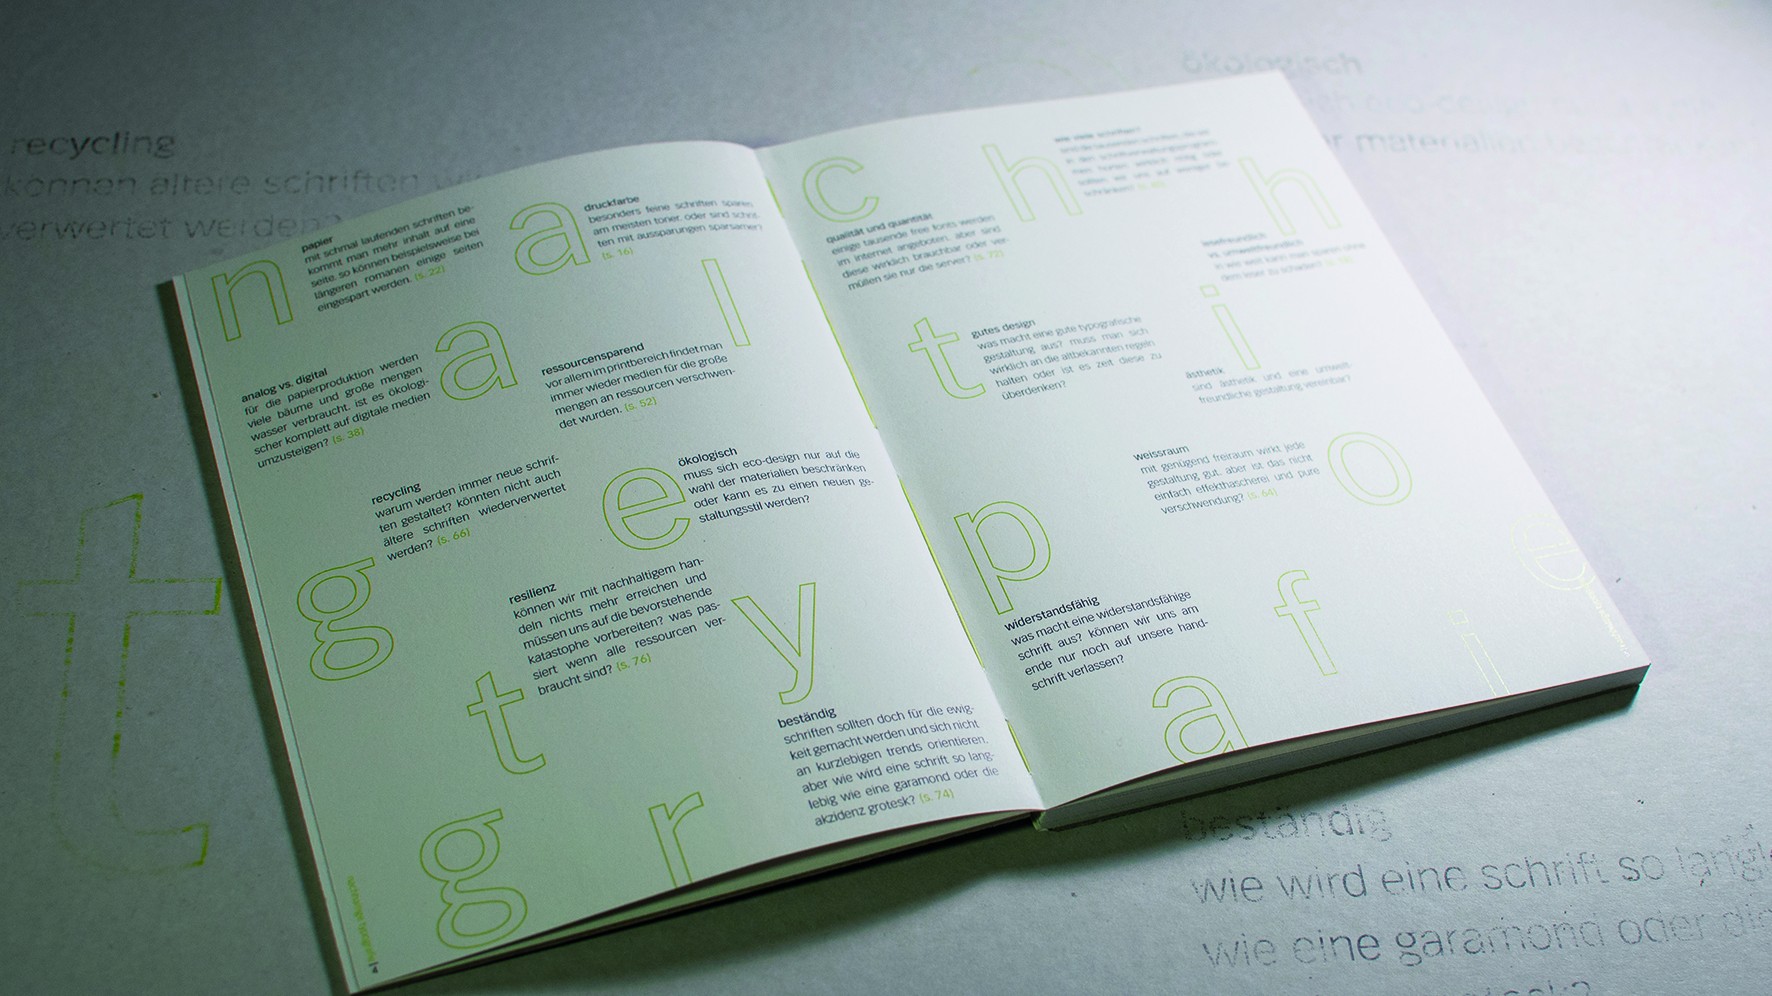 recycling
können ältere schriften
verwertet werden?
ökologisch
papier
mit schmal laufenden schriften be-
kommt man mehr inhalt auf eine
seite. so können beispielsweise bei
längeren romanen einige seiten
eingespart werden. (s. 22)
druckfarbe
besonders feine schriften sparen
am meisten toner. oder sind schrif-
ten mit aussparungen sparsamer?
(s. 16)
n
a
l
a
analog vs. digital
für die papierproduktion werden
viele bäume und große mengen
wasser verbraucht. ist es ökologi-
scher komplett auf digitale medien
umzusteigen? (s. 38)
ressourcensparend
vor allem im printbereich findet man
immer wieder medien für die große
mengen an ressourcen verschwen-
det wurden. (s. 52)
recycling
warum werden immer neue schrif-
ten gestaltet? könnten nicht auch
ältere schriften wiederverwertet
werden? (s. 66)
e
ökologisch
muss sich eco-design nur auf die
wahl der materialien beschränken
oder kann es zu einen neuen ge-
staltungsstil werden?
g
resilienz
können wir mit nachhaltigem han-
deln nichts mehr erreichen und
müssen uns auf die bevorstehende
katastophe vorbereiten? was pas-
siert wenn alle ressourcen ver-
braucht sind? (s. 76)
y
t
beständig
schriften sollten doch für die ewig-
keit gemacht werden und sich nicht
an kurzlebigen trends orientieren.
aber wie wird eine schrift so lang-
lebig wie eine garamond oder die
akzidenz grotesk? (s. 74)
g
r
nachhaltige typografie | 4
c
h
wie viele schriften?
h
qualität und quantität
einige tausende free fonts werden
im internet angeboten. aber sind
diese wirklich brauchbar oder ver-
müllen sie nur die server? (s. 72)
lesefreundlich
vs. umweltfreundlich
t
i
gutes design
was macht eine gute typografische
gestaltung aus? muss man sich
wirklich an die altbekannten regeln
halten oder ist es zeit diese zu
überdenken?
ästhetik
sind ästhetik und eine umwelt-
freundliche gestaltung vereinbar?
weissraum
mit genügend freiraum wirkt jede
gestaltung gut. aber ist das nicht
einfach effekthascherei und pure
verschwendung? (s. 64)
o
p
widerstandsfähig
was macht eine widerstandsfähige
schrift aus? können wir uns am
ende nur noch auf unsere hand-
schrift verlassen?
f
e
i
a
t
beständig
wie wird eine schrift so
wie eine garamond oder